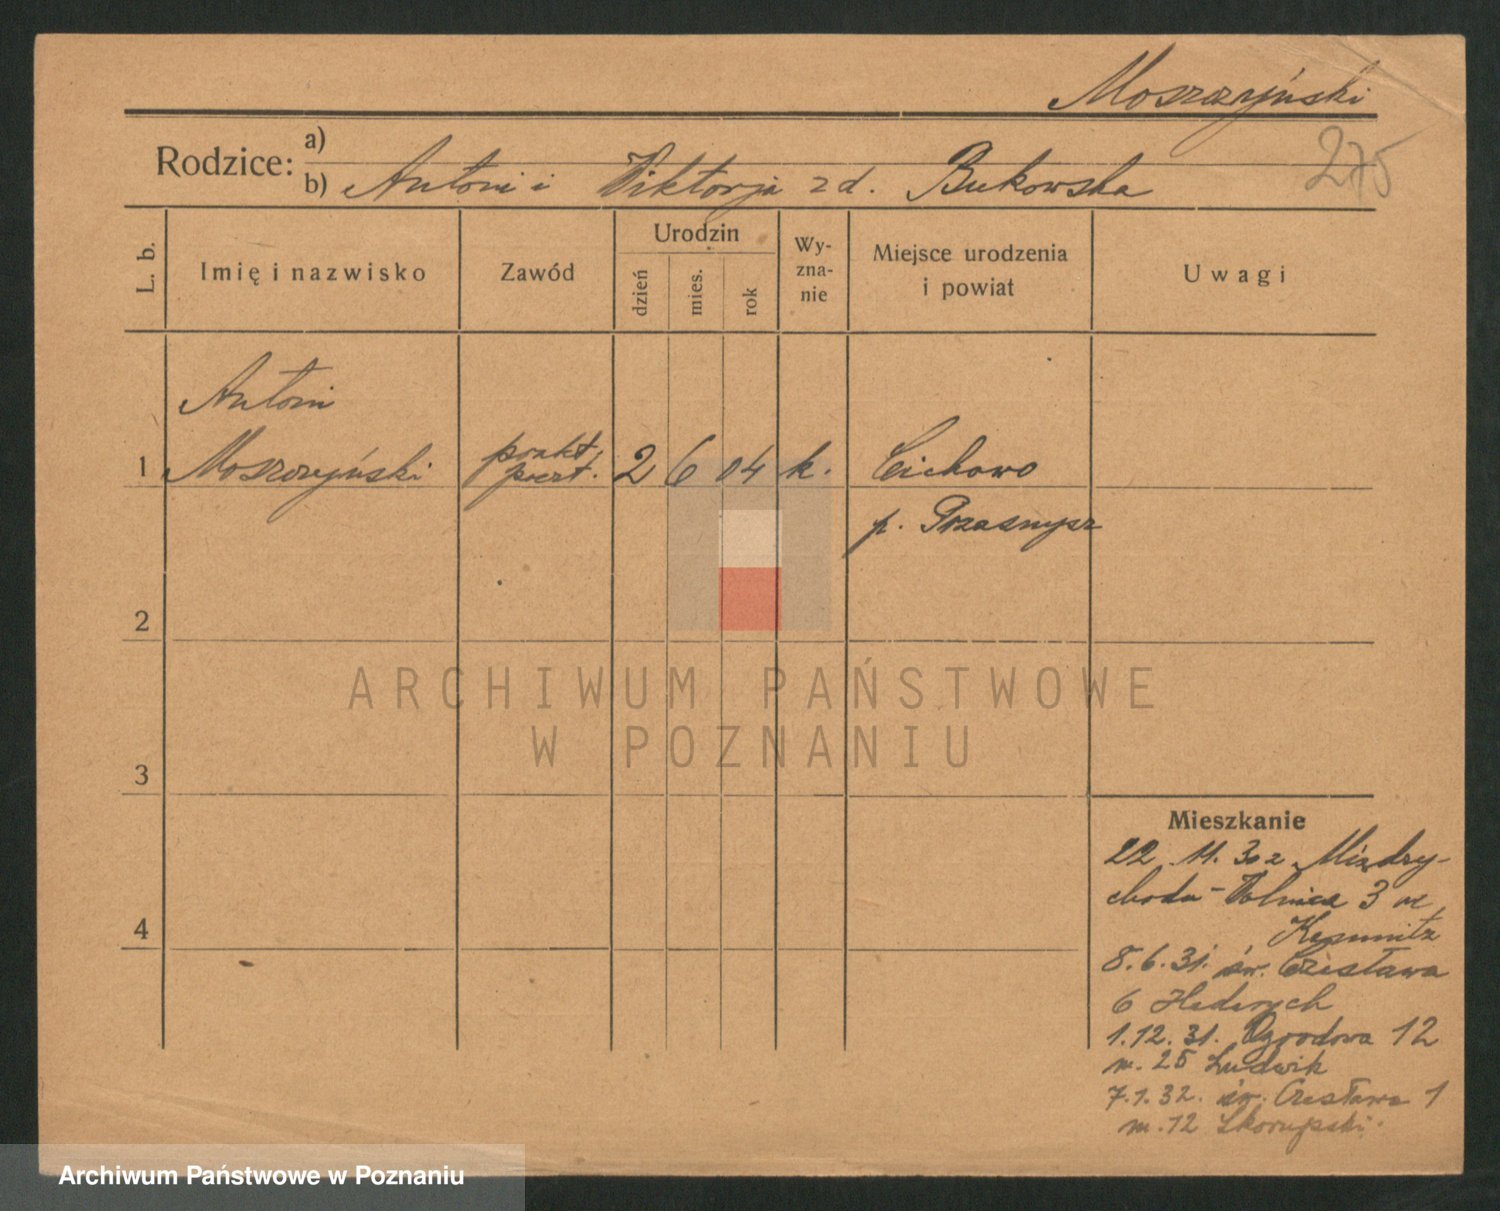 Moszczyński
275
Rodzice: a)
b) Antoni i Wiktorja z d. Bukowska
L. b.
Imię i nazwisko
Zawód
Urodzin
dzień
mies.
rok
Wy-
zna-
nie
Miejsce urodzenia
i powiat
Uwagi
Antoni
1 Moszczyński prakt. 2 6 04 k. Cichowo
poczt.
p. Przasnysz
2
3
4
ARCHIWUM PAŃSTWOWE
W POZNANIU
Mieszkanie
22.11.30 z Między-
chodu - Wolnica 3
8.6.31. św. Czesława
6
1.12.31. Ogrodowa 12
m. 25 Ludwik
7.1.32. św. Czesława 1
m. 12 Skorupski.
Archiwum Państwowe w Poznaniu